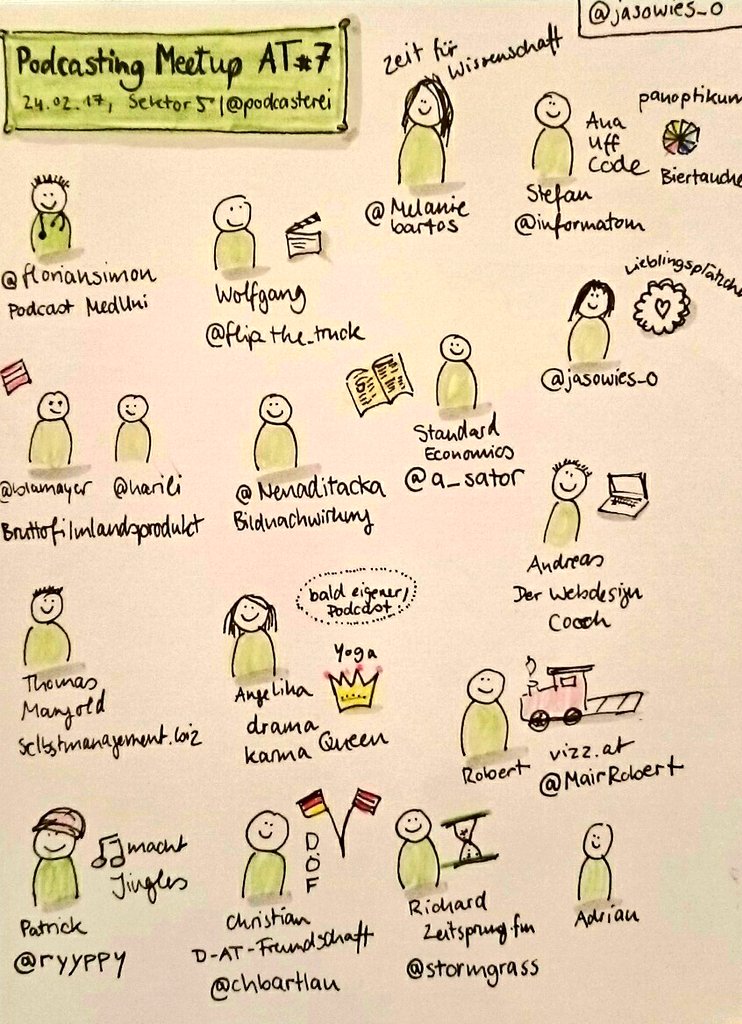 @jasowies_o
Podcasting Meetup AT#7
24.02.17, Sektor 5 | @podcasterei
Zeit für
Wissenschaft
@Melanie
bartos
Aua
Uff
Code
Stefan
@informatom
panoptikum
Biertauche
@floriansimon
Podcast MedUni
Wolfgang
@flip_the_truck
Lieblingsplätzche
@jasowies_o
@blamayer
@harili
Bruttofilmlandsprodukt
@Nenaditacka
Bildnachwirkung
Standard
Economics
@a_sator
Andreas
Der Webdesign
Coach
Thomas
Mangold
Selbstmanagement.biz
bald eigener
Podcast!
Yoga
Angelika
drama
karma Queen
Robert
vizz.at
@MairRobert
macht
Jingles
Patrick
@ryyppy
DÖF
Christian
D-AT-Freundschaft
@chbartlau
Richard
Zeitsprung.fm
@stormgrass
Adrian